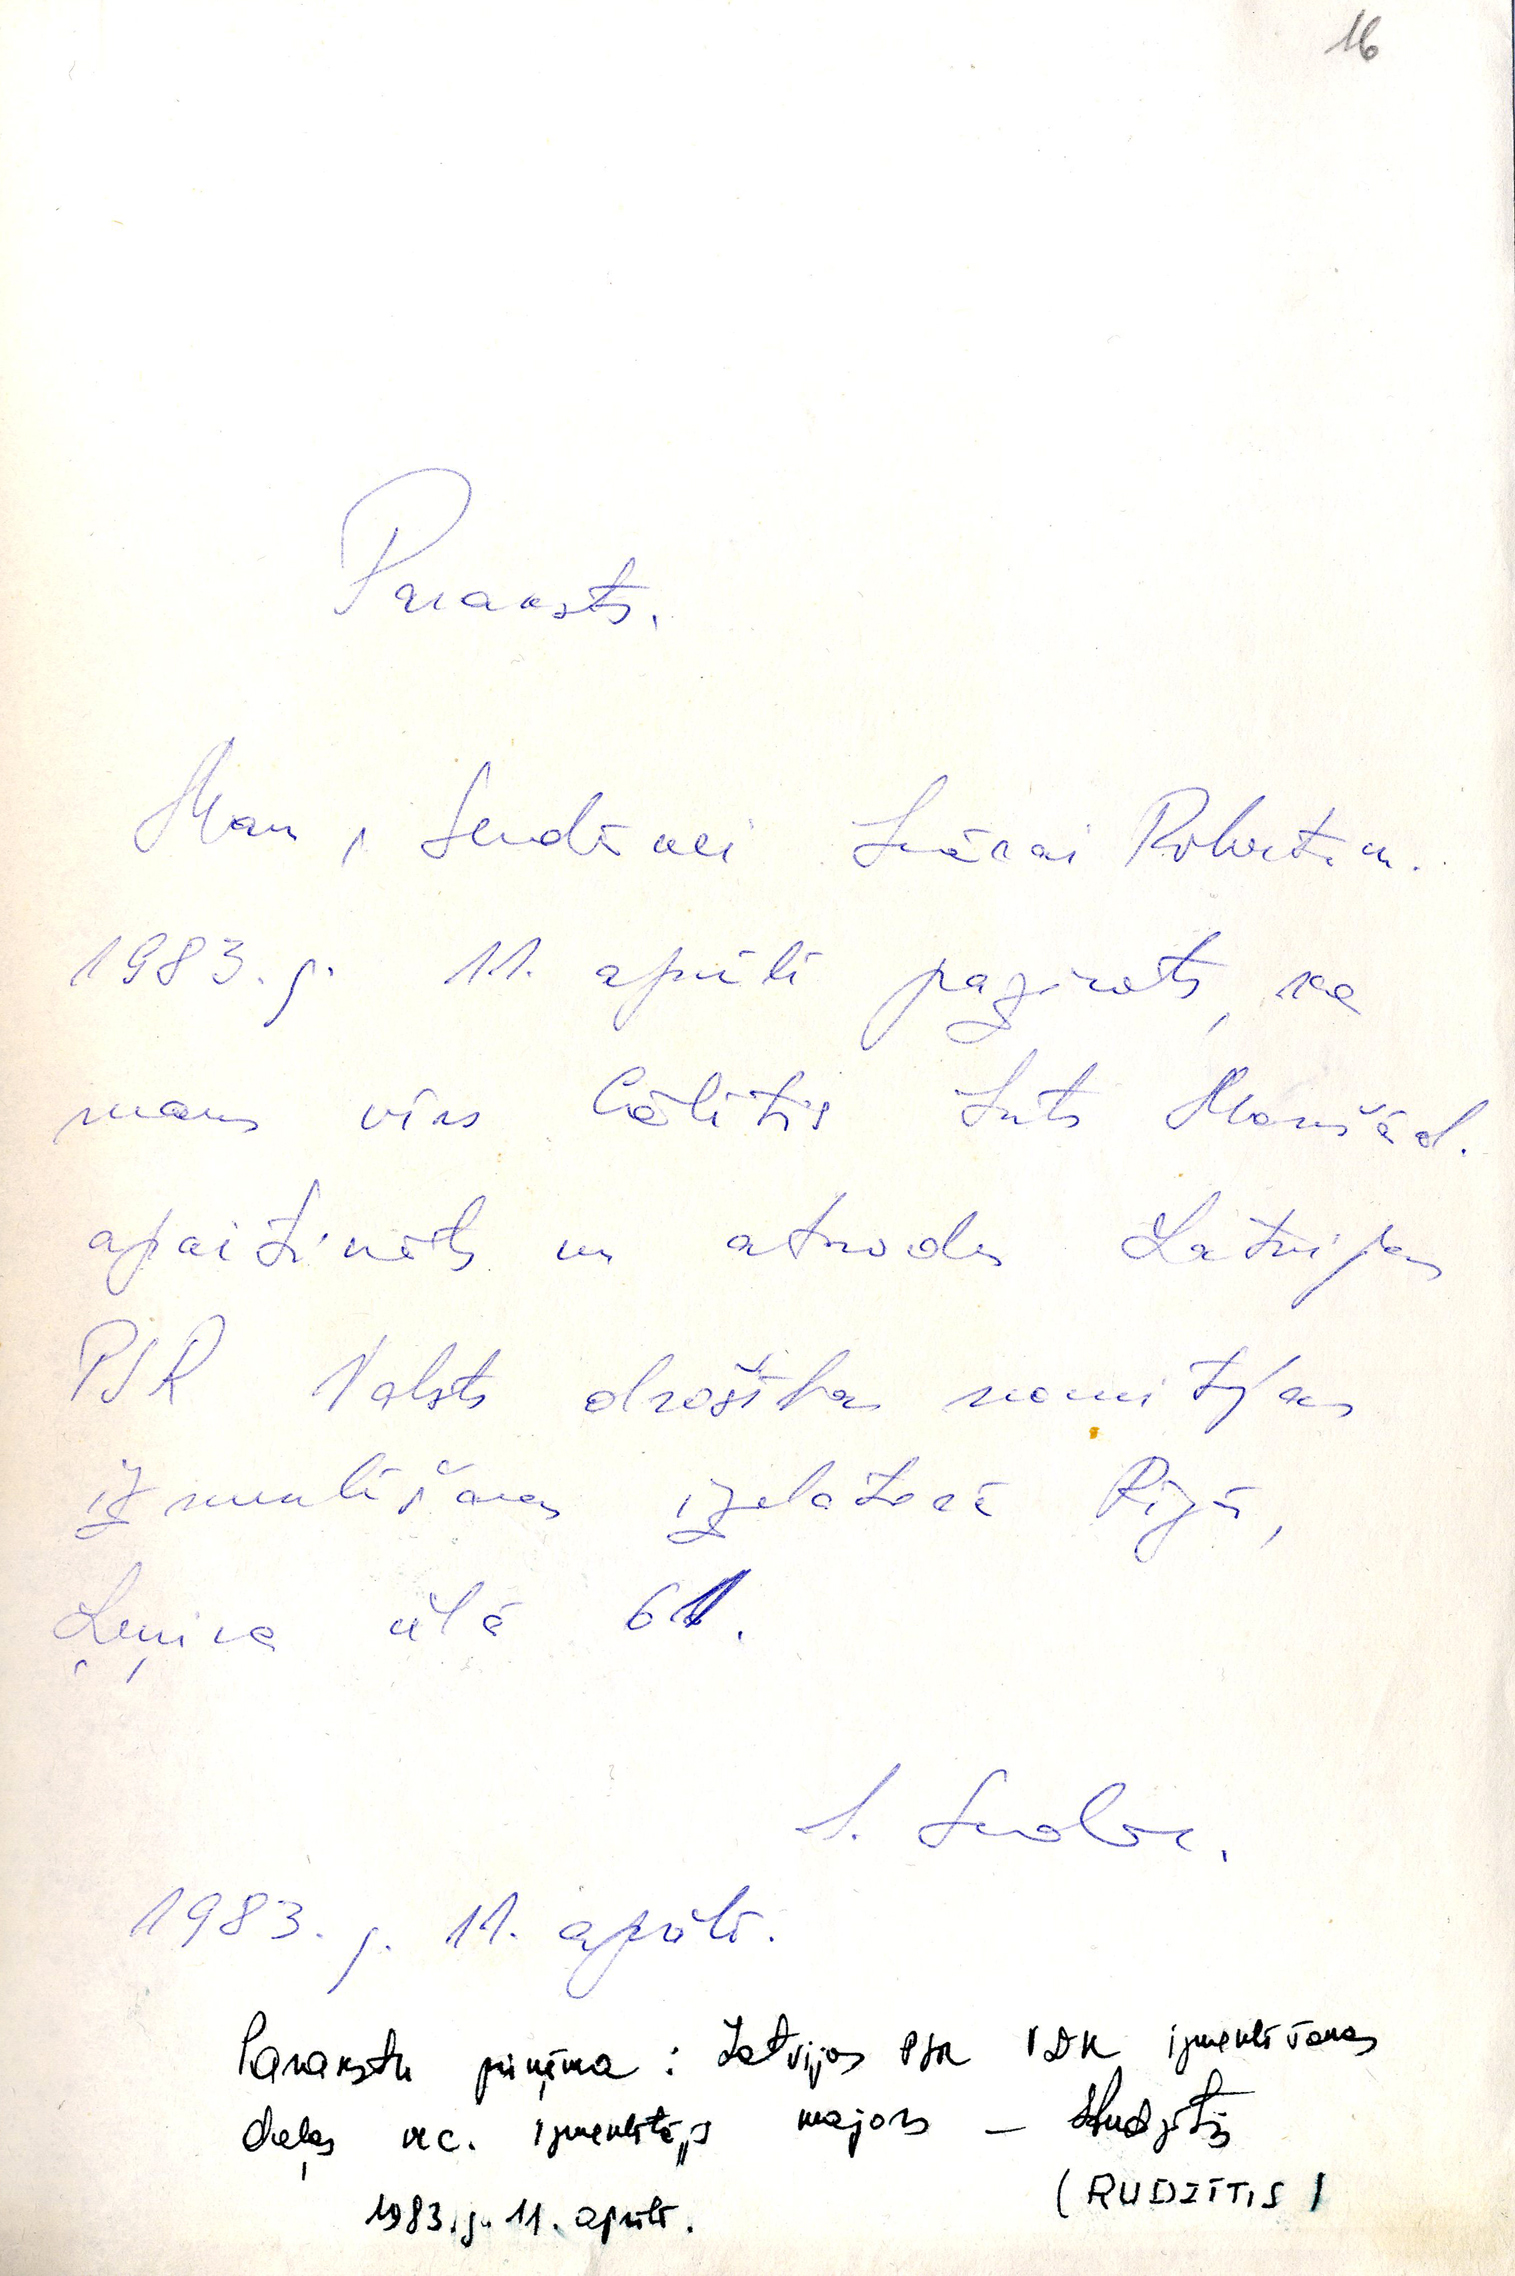 16
Paraksts.
Man, Inārai Robertam.
1983. g. 11. aprīlī paziņots, ka
mans vīrs Cālītis Ints
apcietināts un atrodas Latvijas
PSR Valsts drošības komitejas
izmeklēšanas izolatorā Rīgā,
Ļeņina ielā 61.
I.
1983. g. 11. aprīlī.
Parakstu pieņēma: Latvijas PSR VDK izmeklēšanas
daļas vec. izmeklētājs majors – Rudzītis
(RUDZĪTIS)
1983. g. 11. aprīlī.